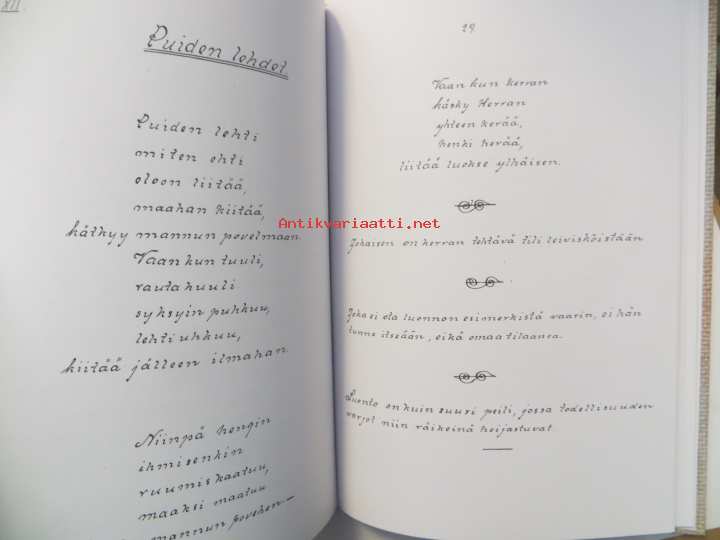 XII.
Puiden lehdet.
Puiden lehti
miten ehti
oloon liitää,
maahan kiitää,
kätkyy mannun povelmaan.
Vaan kun tuuli,
rautahuuli
syksyin puhkuu,
lehti uhkuu,
kiitää jälleen ilmahan
Niinpä hengin
ihmisenkin
ruumis kaatuu,
maaksi maatuu
mannun povehen —
29
Vaan kun kerran
käsky Herran
yhteen kerää,
henki herää,
liitää luokse ylhäisen.
Jokaisen on kerran tehtävä tili leiviskäistään
Joka ei ota luonnon esimerkistä vaarin, ei hän
tunne itseään, eikä omaa tilaansa.
Luonto on kuin suuri peili, jossa todellisuuden
varjot niin räikeinä heijastuvat.
Antikvariaatti.net